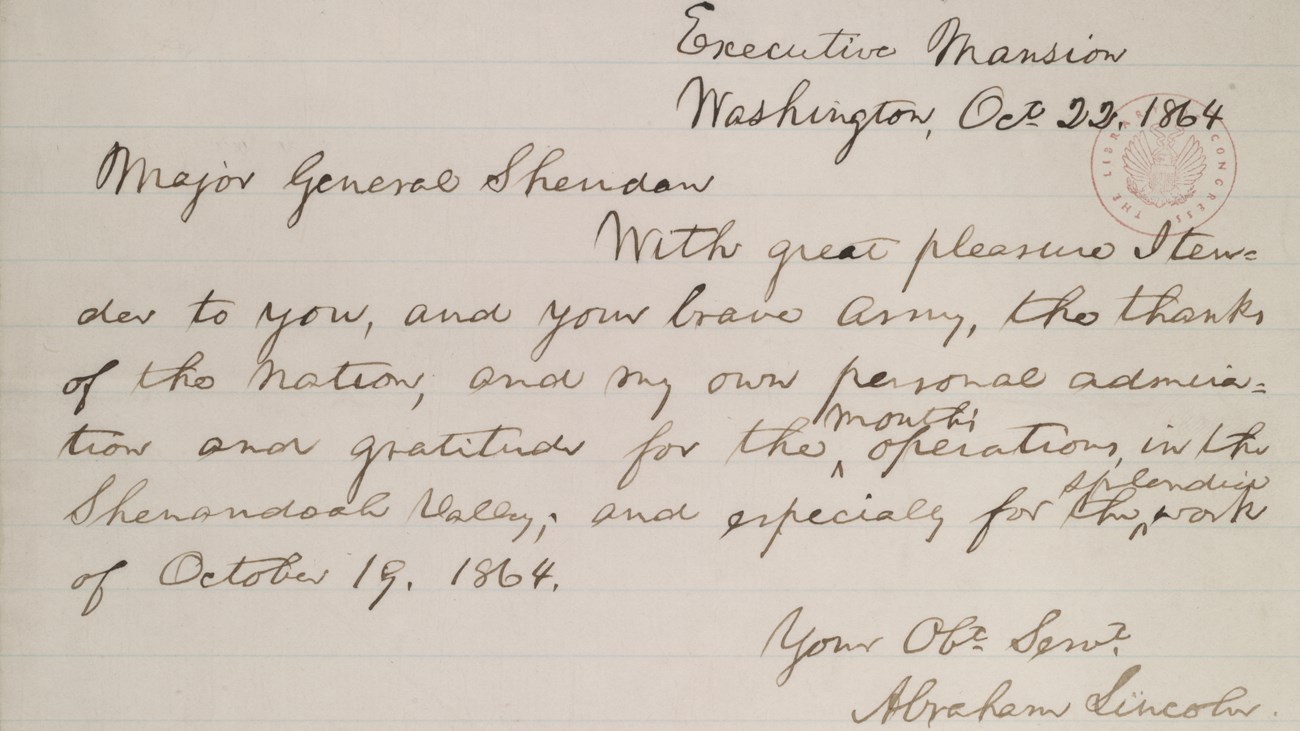 Executive Mansion
Washington, Oct. 22, 1864
THE LIBRARY OF CONGRESS
Major General Sheridan
With great pleasure I ten=
der to you, and your brave army, the thanks
of the Nation, and my own personal admira=
month's
tion and gratitude for the ^ operations, in the
splendid
Shenandoah Valley; and especialy for the ^ work
of October 19. 1864.
Your Obt. Servt.
Abraham Lincoln.